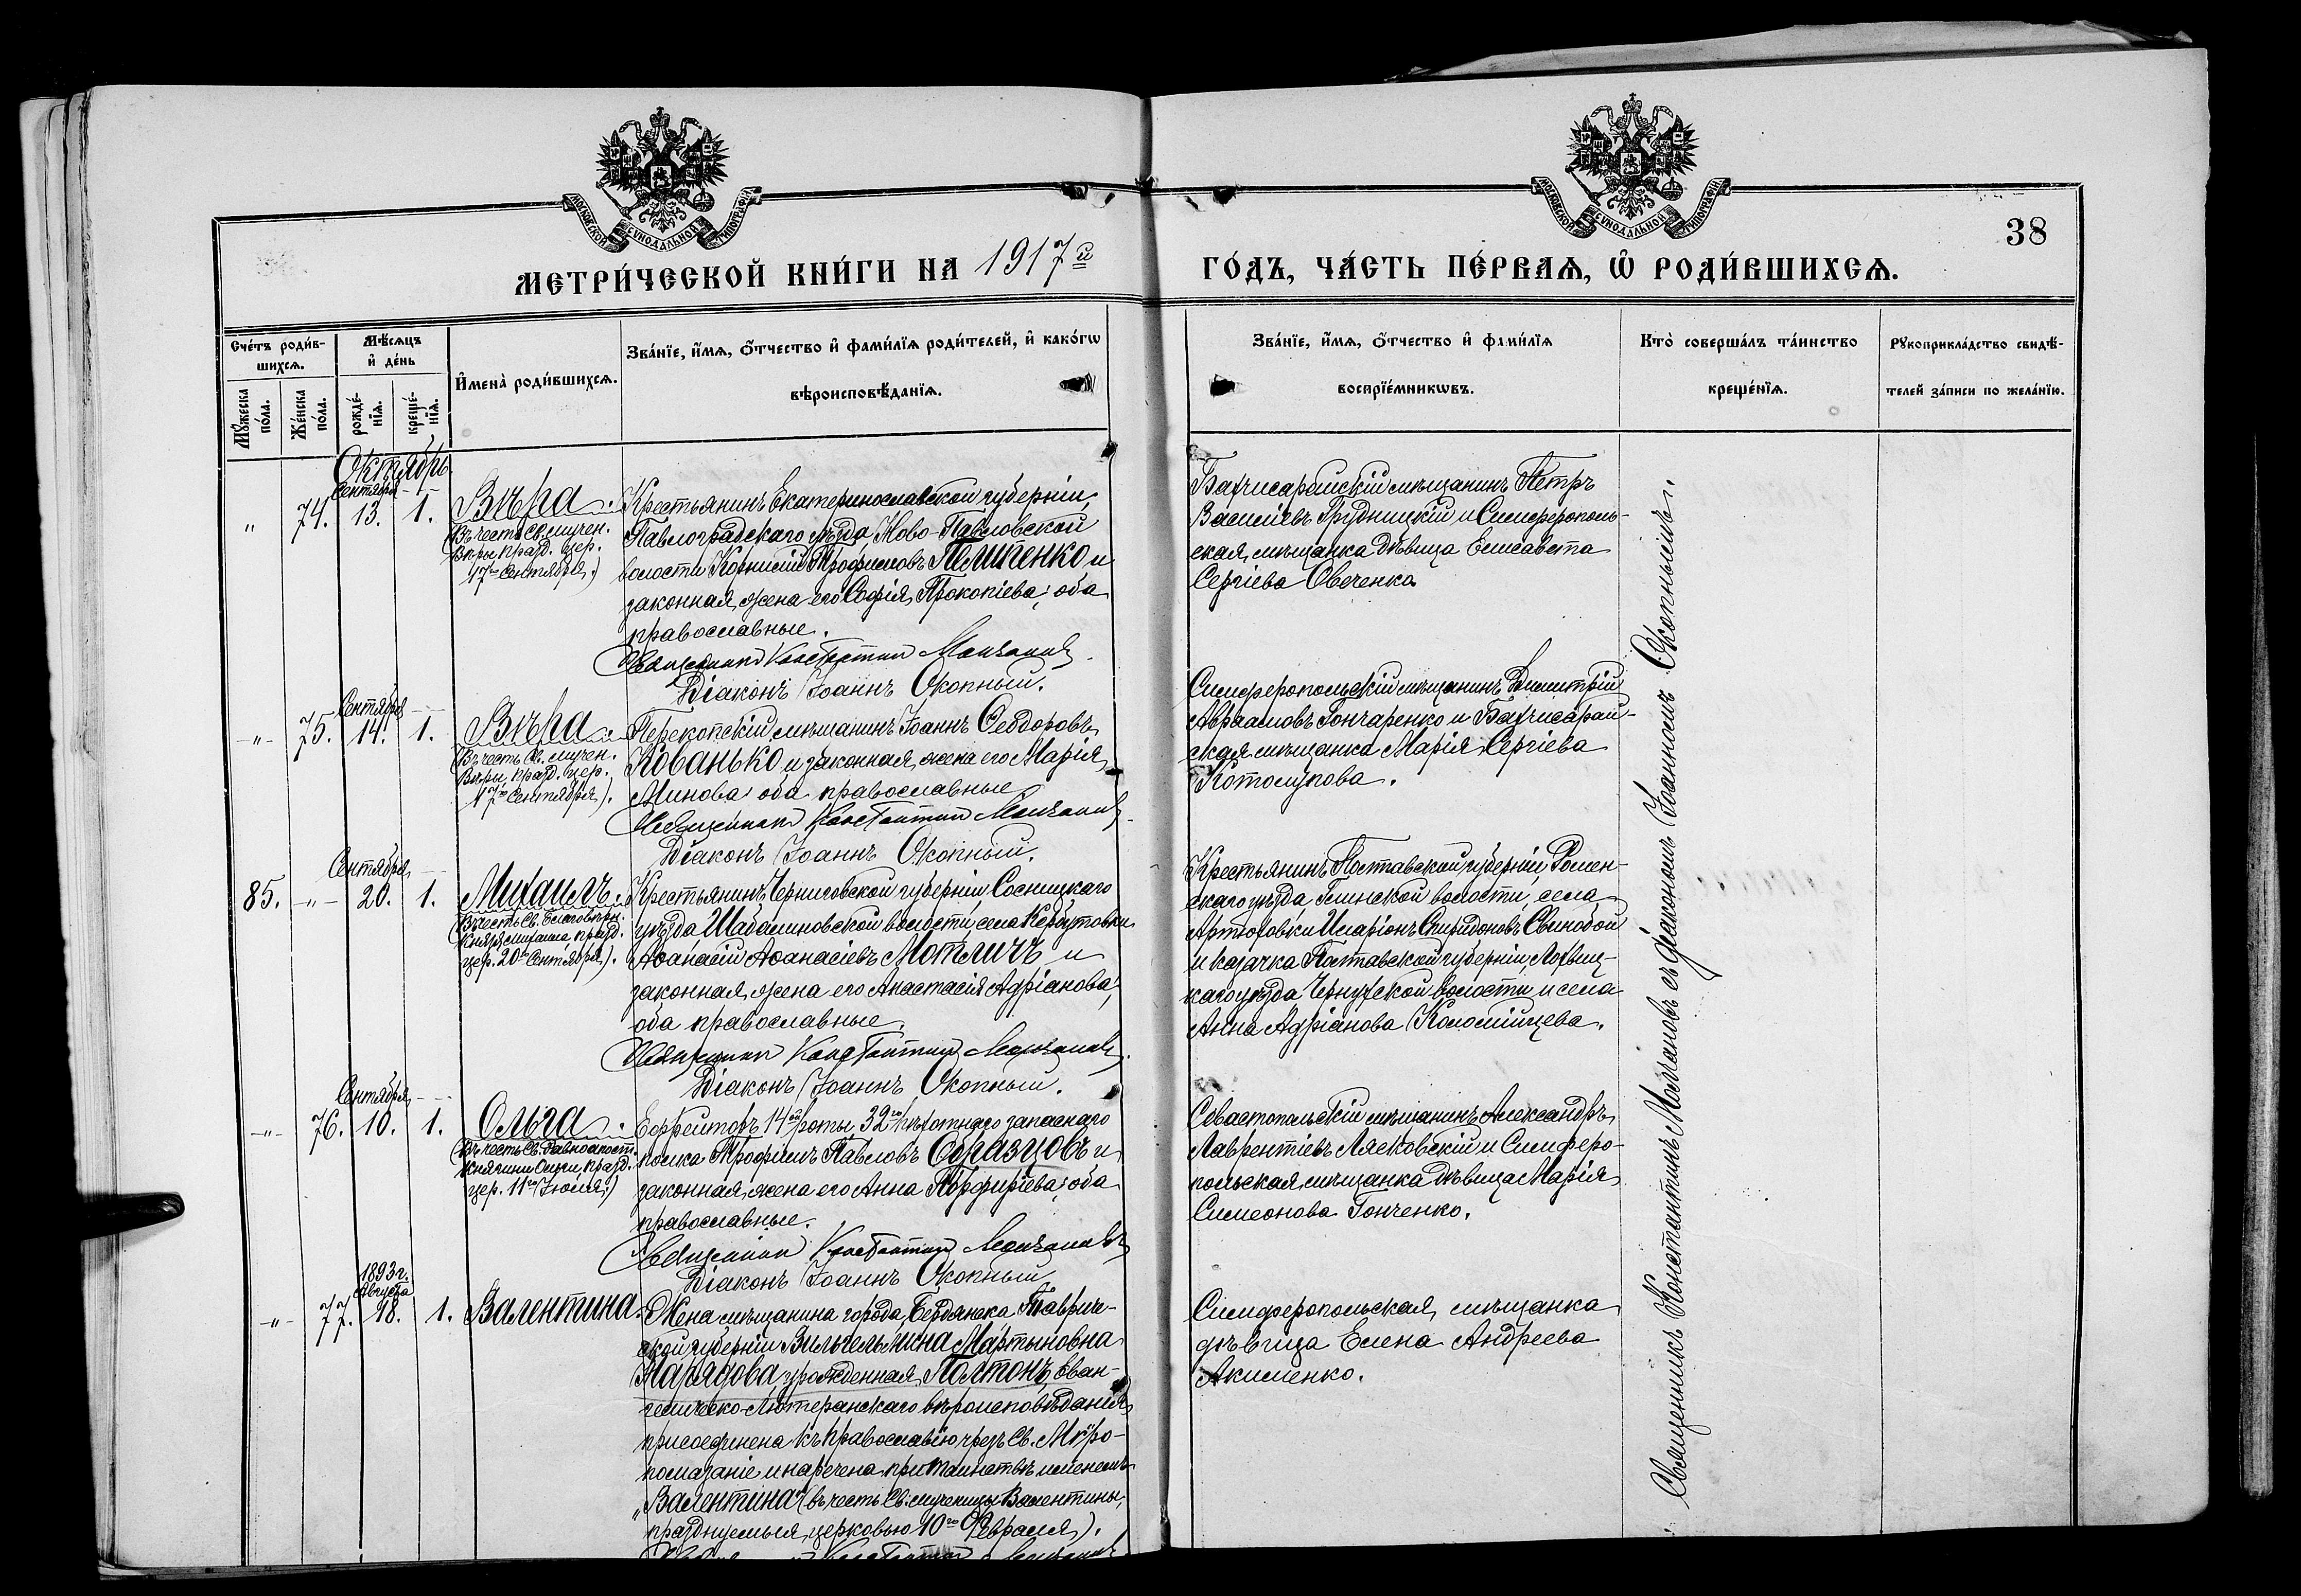 МОСКОВСКОЙ СѴНОДАЛЬНОЙ ТИПОГРАФІИ
МОСКОВСКОЙ СѴНОДАЛЬНОЙ ТИПОГРАФІИ
38
МЕТРИ́ЧЕСКОЙ КНИ́ГИ НА 1917й
ГО́ДЪ, ЧА́СТЬ ПЕ́РВАѦ, Ѽ РОДИ́ВШИХСѦ.
Сче́тъ роди́в-
шихсѧ.
Мꙋ́жеска по́ла.
Же́нска по́ла.
Мѣ́сѧцъ
и҆ де́нь
рожде́-
нїѧ.
креще́-
нїѧ.
И҆мена̀ роди́вшихсѧ.
Зва́нїе, и҆́мѧ, ѻ҆́тчество и҆ фами́лїѧ роди́телей, и҆ како́гѡ
вѣроисповѣ́данїѧ.
Зва́нїе, и҆́мѧ, ѻ҆́тчество и҆ фами́лїѧ
воспрїе́мникѡвъ.
Кто̀ соверша́лъ та́инство
креще́нїѧ.
Рꙋкоприкла́дство свидѣ́-
телей за́писи по жела́нїю.
Октябрь
Сентября
" 74. 13. 1.
Вѣра.
(Въ честь Св. мучен.
Вѣры, празд. цер.
17го Сентября.)
Крестьянинъ Екатеринославской губерніи,
Павлоградскаго уѣзда Ново-Павловской
волости Корнилій Трофимовъ Пелипенко и
законная жена его Софія Прокопіева; оба
православные.
Священникъ Константинъ Молчановъ.
Діаконъ Іоаннъ Окопный.
Бахчисарайскій мѣщанинъ Петръ
Василіевъ Грудницкій и Симферополь-
ская мѣщанка дѣвица Елисавета
Сергіева Овченко.
Сентября
-"- 75. 14. 1.
Вѣра.
(Въ честь Св. мучен.
Вѣры, празд. цер.
17го Сентября).
Перекопскій мѣщанинъ Іоаннъ Ѳеодоровъ
Кованько и законная жена его Марія
Минова оба православные
Священникъ Константинъ Молчановъ.
Діаконъ Іоаннъ Окопный.
Симферопольскій мѣщанинъ Димитрій
Авраамовъ Гончаренко и Бахчисарай-
ская мѣщанка Марія Сергіева
Котолупова.
Сентября
85. -"- 20. 1.
Михаилъ.
(Въ честь Св. Благовѣрн.
Князя Михаила, празд.
цер. 20го Сентября).
Крестьянинъ Черниговской губерніи, Сосницкаго
уѣзда Шабалиновской волости, села Кербутовки
Аѳанасій Аѳанасіевъ Мотличъ и
законная жена его Анастасія Адріанова,
оба православные.
Священникъ Константинъ Молчановъ.
Діаконъ Іоаннъ Окопный.
Крестьянинъ Полтавской губерніи, Ромен-
скаго уѣзда, Глинской волости, села
Артюховки Иларіонъ Спиридоновъ Свинобой
и козачка Полтавской губерніи, Лохвиц-
каго уѣзда Чернухской волости и села
Анна Адріанова Коломійцева.
Сентября
-"- 76. 10. 1.
Ольга.
(Въ честь Св. Равноапост.
Княгини Ольги, празд.
цер. 11го Іюля.)
Ефрейторъ 14ой роты 32го пѣхотнаго запаснаго
полка Трофимъ Павловъ Образцовъ и
законная жена его Анна Порфиріева; оба
православные.
Священникъ Константинъ Молчановъ
Діаконъ Іоаннъ Окопный
Севастопольскій мѣщанинъ Александръ
Лаврентіевъ Лясковскій и Симферо-
польская мѣщанка дѣвица Марія
Симеонова Гонченко.
1893 г.
Августа
-"- 77. 18. 1.
Валентина.
Жена мѣщанина города Бердянска Тавриче-
ской губерніи Вильгельмина Мартыновна
Нарядова, урожденная Полтонъ, еван-
гелическо-Лютеранскаго вѣроисповѣданія,
присоединена къ православію чрезъ Св. Мѵро-
помазаніе и наречена при таинствѣ именемъ
„Валентина" (въ честь Св. мученицы Валентины,
празднуемыя церковью 10го Февраля).
Симферопольская мѣщанка
дѣвица Елена Андреева
Акименко.
Священникъ Константинъ Молчановъ съ діакономъ Іоанномъ Окопнымъ.